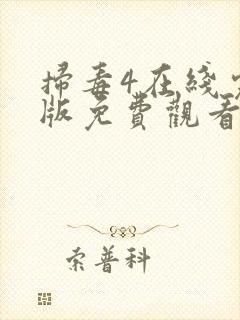 掃毒4在綫
版免費觀看
索普科